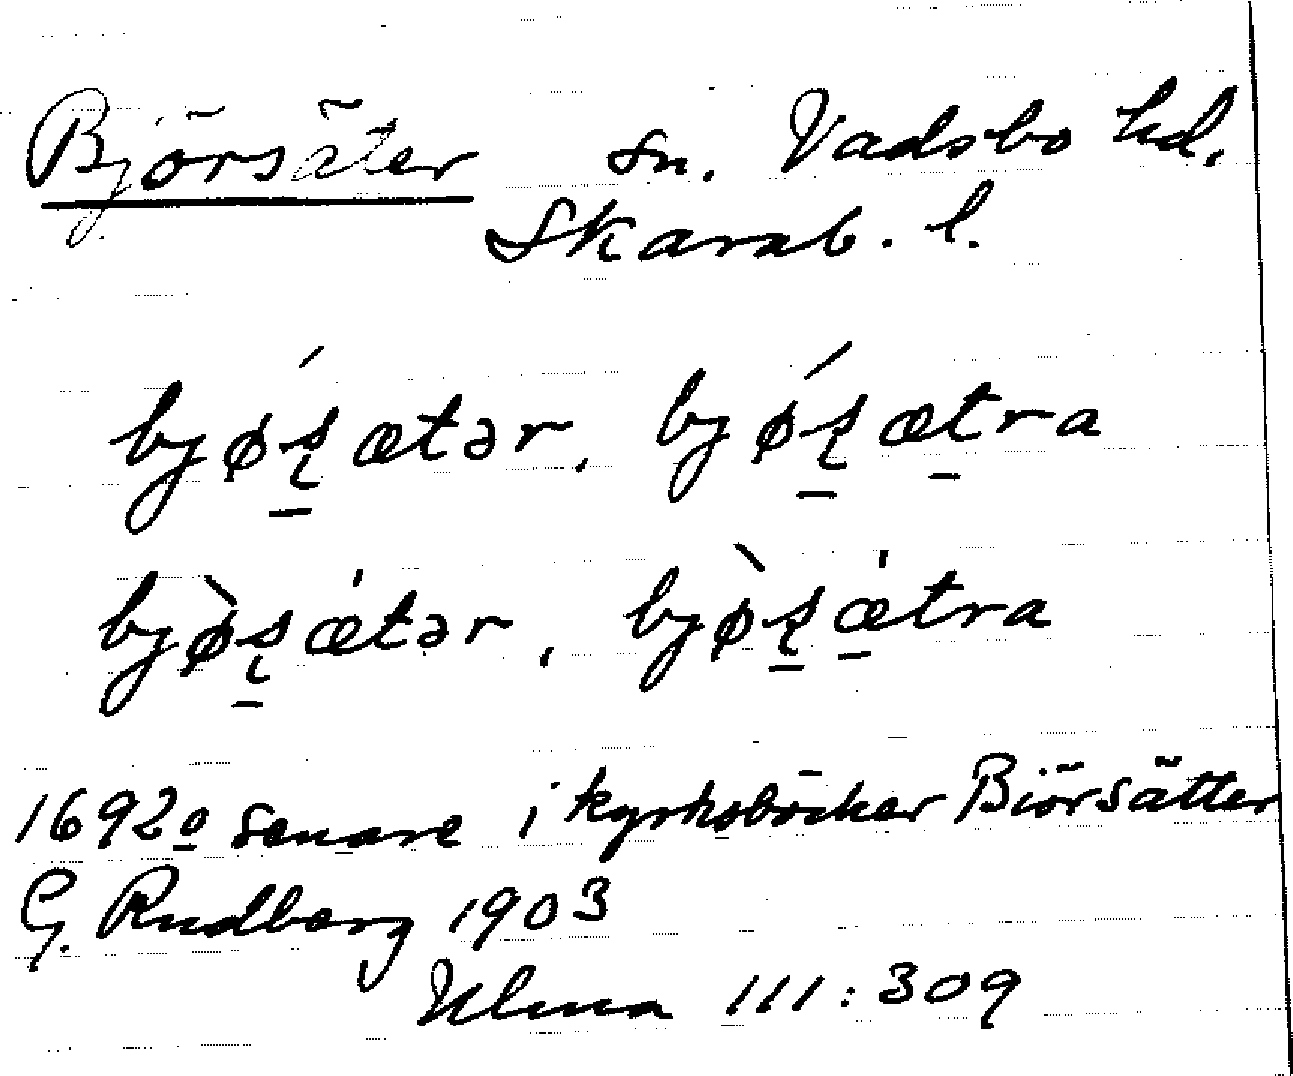 Björsäter sn. Vadsbo hd.
Skarab. l.
bjǿʂætər, bjǿʂætra
bjø̀ʂǽtər, bjø̀ʂǽtra
1692 o senare i kyrkoböcker Biörsätter
G. Rudberg 1903
Ulma 111:309